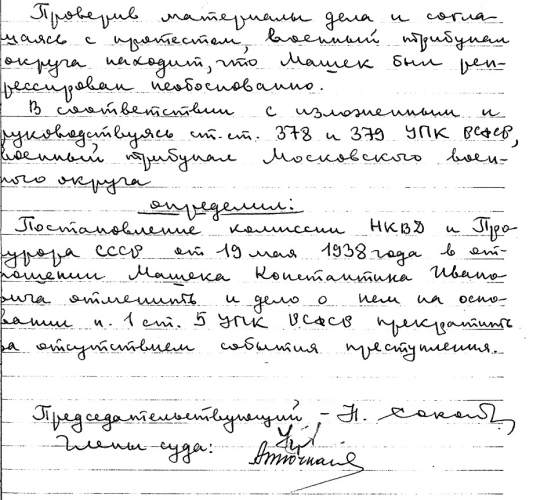 Проверив материалы дела и согла-
шаясь с протестом, военный трибунал
округа находит, что Машек был реп-
рессирован необоснованно.
В соответствии с изложенным и
руководствуясь ст. ст. 378 и 379 УПК РСФСР,
военный трибунал Московского воен-
ного округа
определил:
Постановление комиссии НКВД и Про-
курора СССР от 19 мая 1938 года в от-
ношении Машека Константина Ивано-
вича отменить и дело о нем на осно-
вании п. 1 ст. 5 УПК РСФСР прекратить
за отсутствием события преступления.
Председательствующий - Н.
Члены суда: